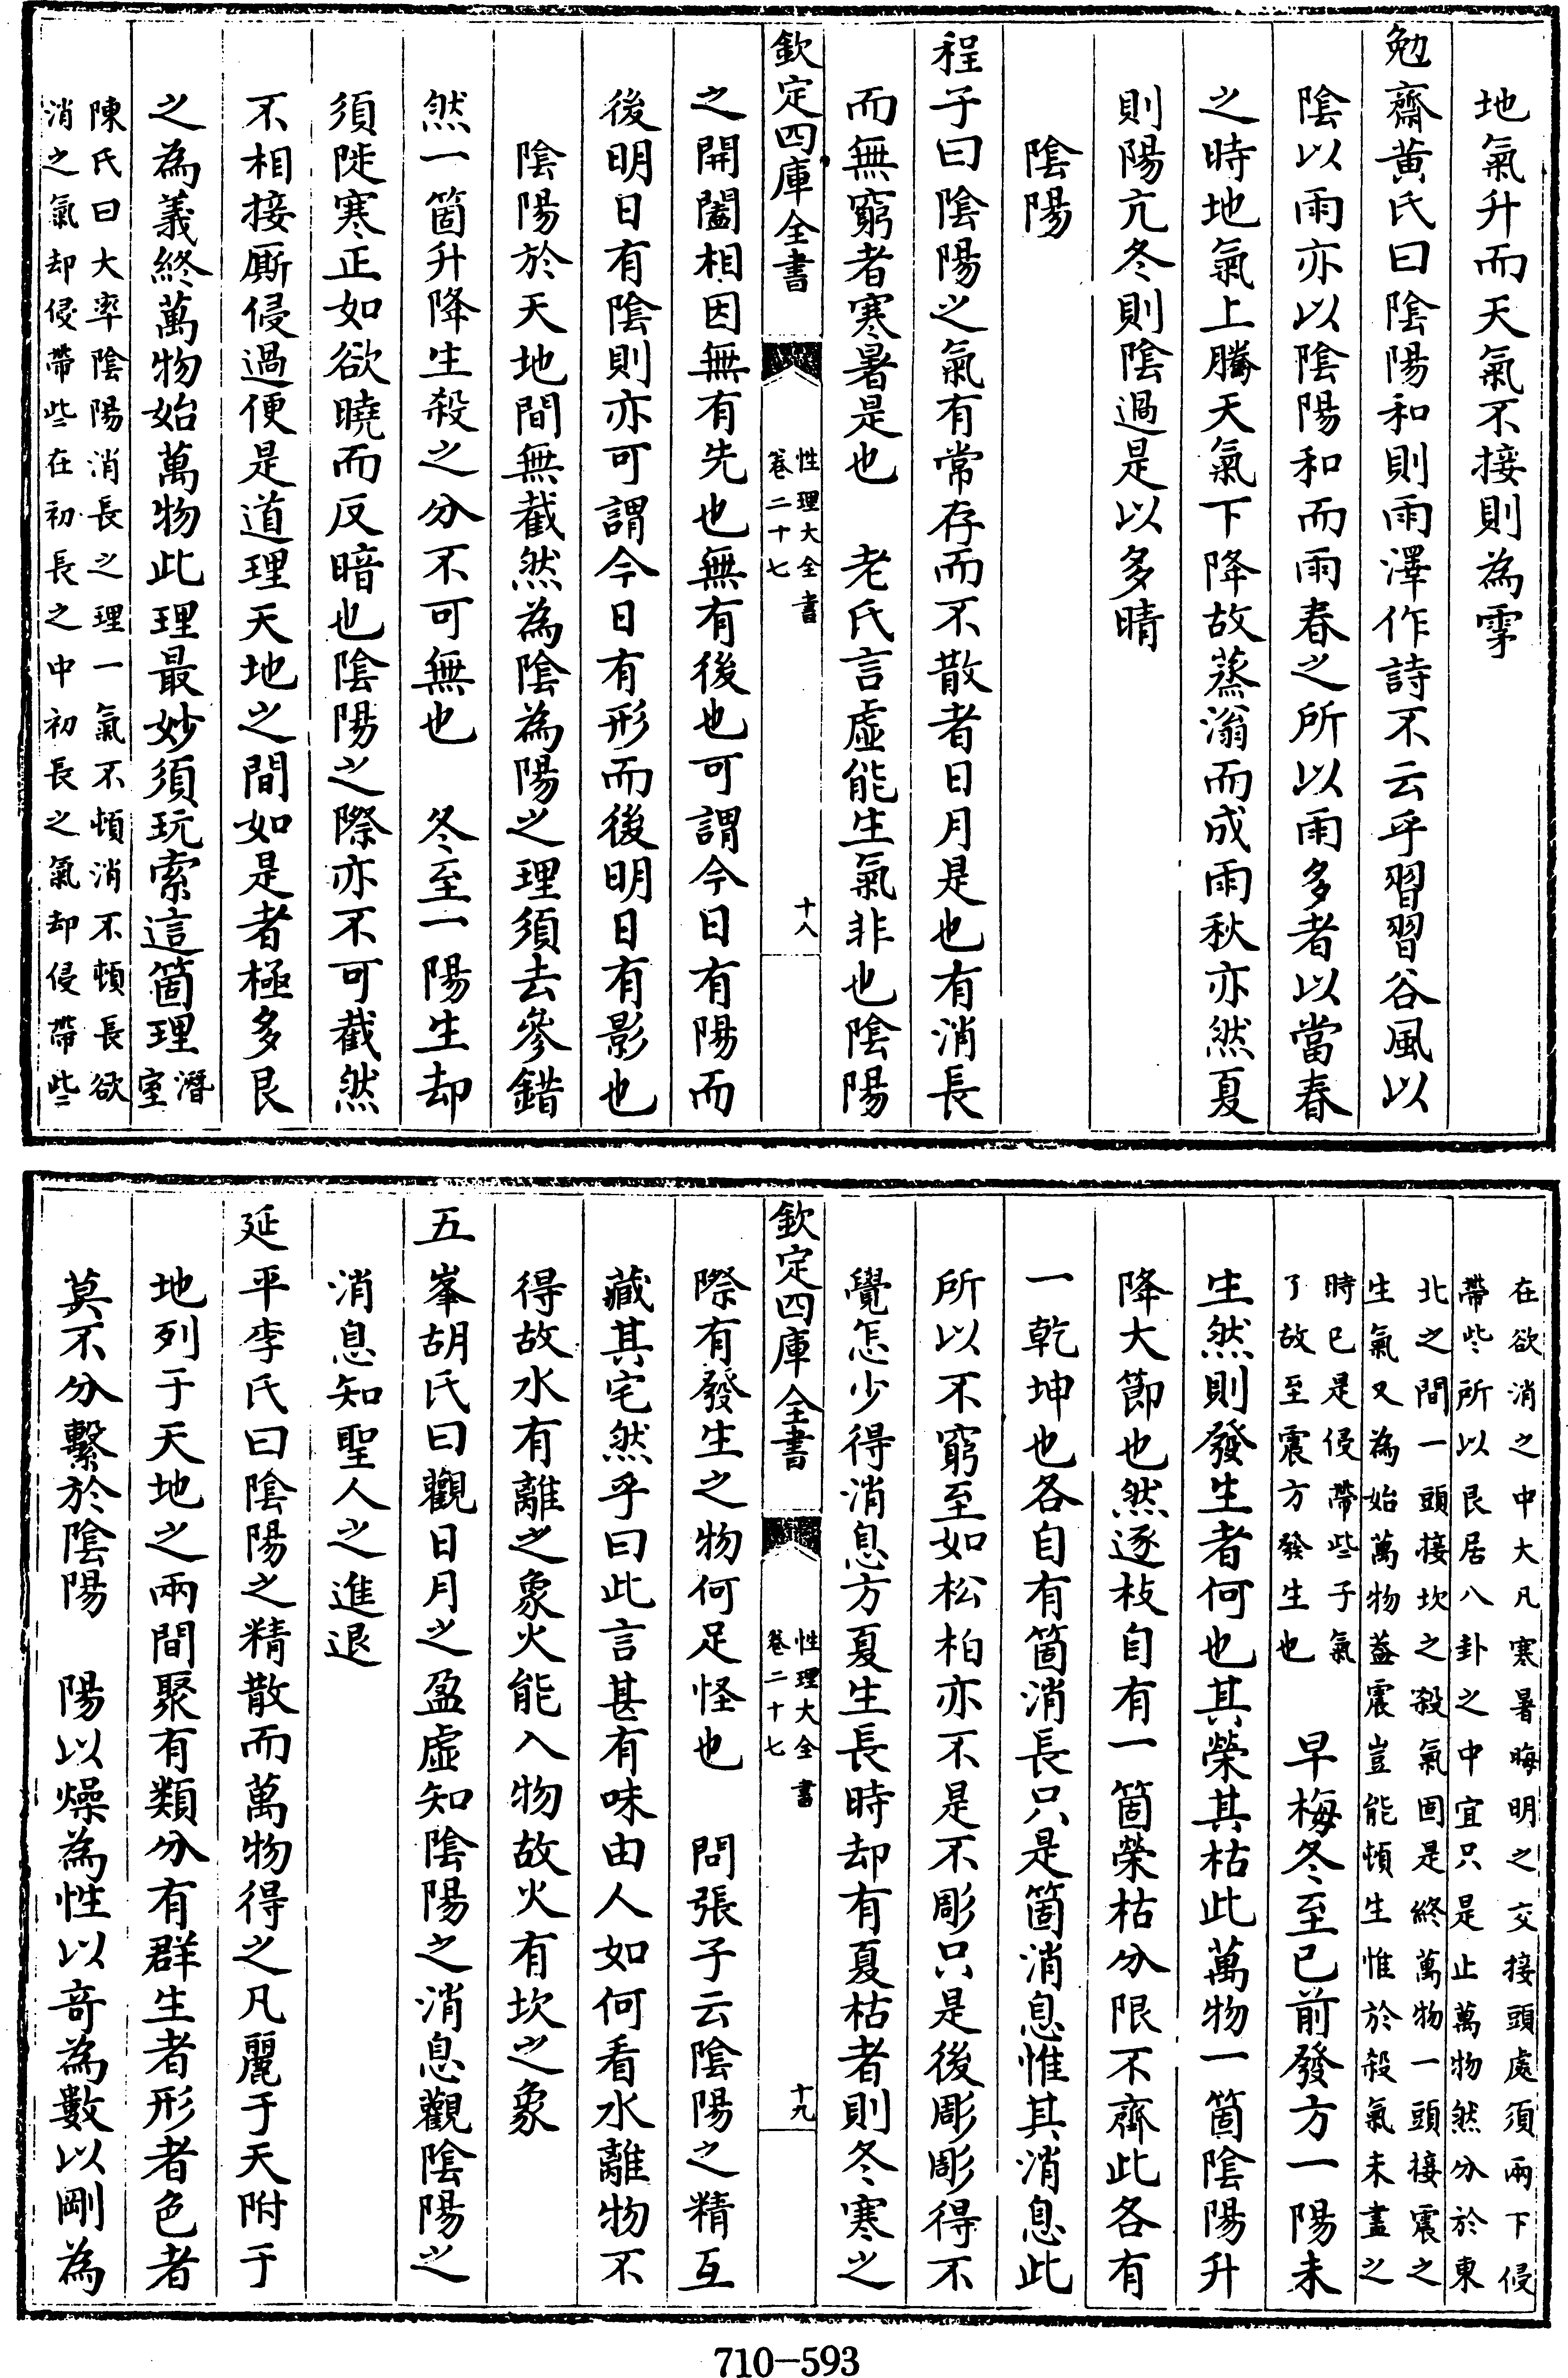 地氣升而天氣不接則為雺
勉齋黄氏曰陰陽和則雨澤作詩不云乎習習谷風以
陰以雨亦以陰陽和而雨春之所以雨多者以當春
之時地氣上騰天氣下降故蒸滃而成雨秋亦然夏
則陽亢冬則陰過是以多晴
陰陽
程子曰陰陽之氣有常存而不散者日月是也有消長
而無窮者寒暑是也　老氏言虛能生氣非也陰陽
欽定四庫全書
性理大全書
卷二十七
十八
之開闔相因無有先也無有後也可謂今日有陽而
後明日有陰則亦可謂今日有形而後明日有影也
陰陽於天地間無截然為陰為陽之理須去參錯
然一箇升降生殺之分不可無也　冬至一陽生却
須陡寒正如欲曉而反暗也陰陽之際亦不可截然
不相接厮侵過便是道理天地之間如是者極多艮
之為義終萬物始萬物此理最妙須玩索這箇理潛室
陳氏曰大率陰陽消長之理一氣不頓消不頓長欲
消之氣却侵帶些在初長之中初長之氣却侵帶些
在欲消之中大凡寒暑晦明之交接頭處須兩下侵
帶些所以艮居八卦之中宜只是止萬物然分於東
北之間一頭接坎之殺氣固是終萬物一頭接震之
生氣又為始萬物蓋震豈能頓生惟於殺氣未盡之
時已是侵帶些子氣
了故至震方發生也　早梅冬至已前發方一陽未
生然則發生者何也其榮其枯此萬物一箇陰陽升
降大節也然逐枝自有一箇榮枯分限不齊此各有
一乾坤也各自有箇消長只是箇消息惟其消息此
所以不窮至如松柏亦不是不彫只是後彫彫得不
覺怎少得消息方夏生長時却有夏枯者則冬寒之
欽定四庫全書
性理大全書
卷二十七
十九
際有發生之物何足怪也　問張子云陰陽之精互
藏其宅然乎曰此言甚有味由人如何看水離物不
得故水有離之象火能入物故火有坎之象
五峯胡氏曰觀日月之盈虛知陰陽之消息觀陰陽之
消息知聖人之進退
延平李氏曰陰陽之精散而萬物得之凡麗于天附于
地列于天地之兩間聚有類分有群生者形者色者
莫不分繫於陰陽　陽以燥為性以奇為數以剛為
710-593